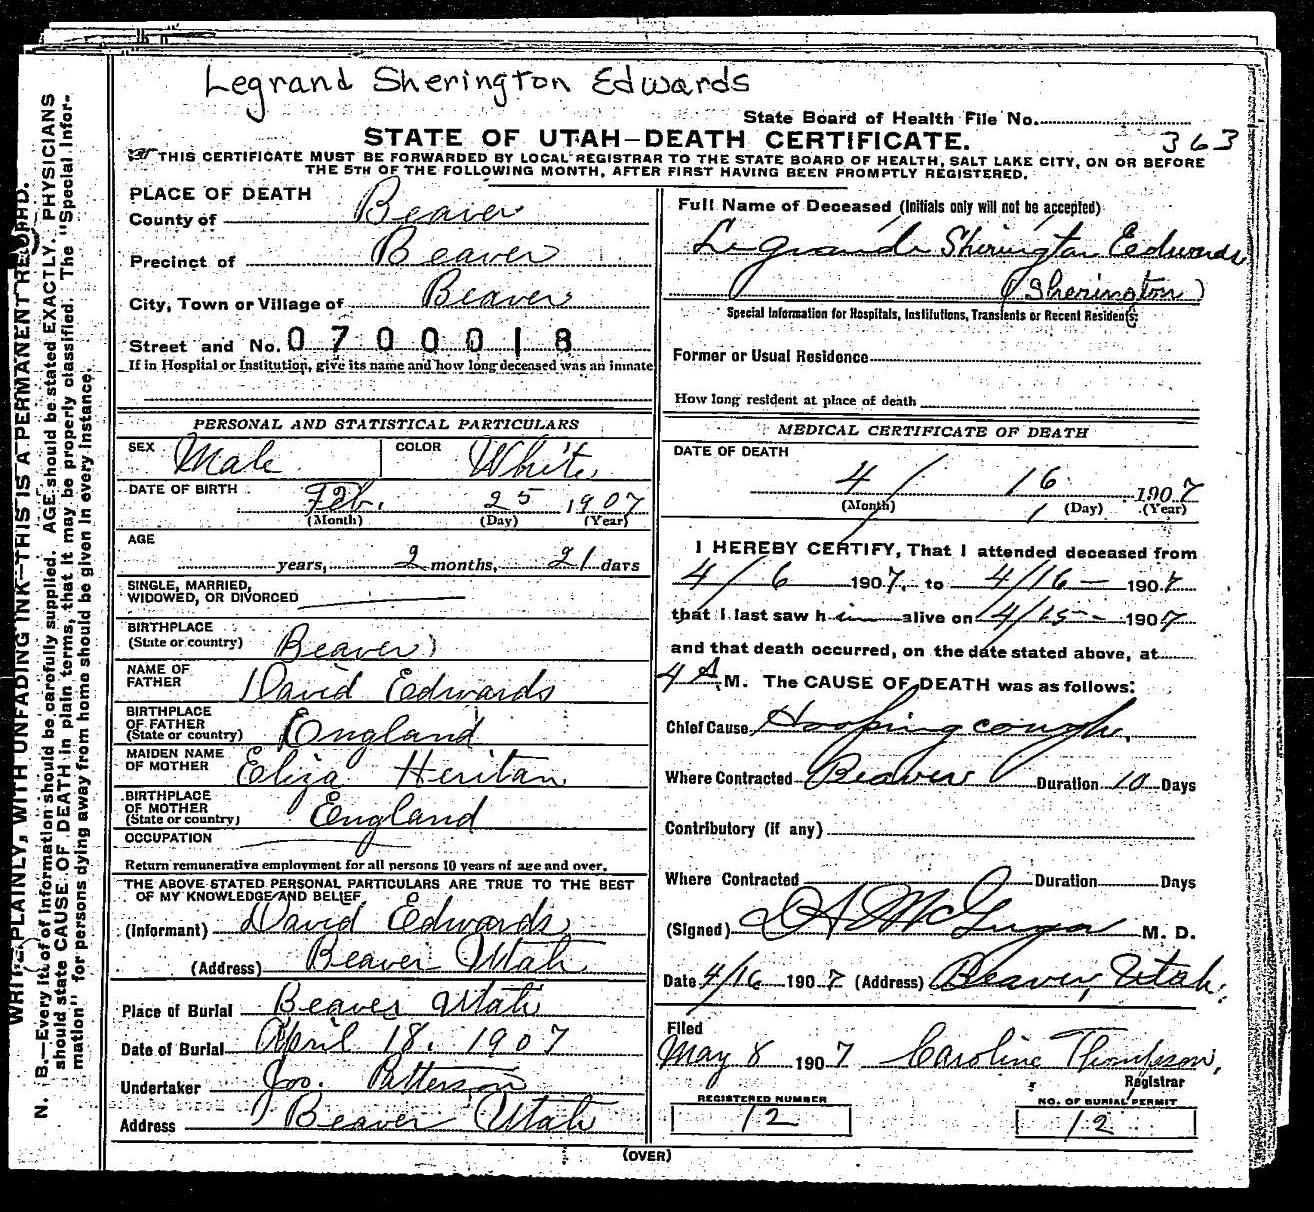 Legrand Sherington Edwards
State Board of Health File No.
STATE OF UTAH—DEATH CERTIFICATE.
363
THIS CERTIFICATE MUST BE FORWARDED BY LOCAL REGISTRAR TO THE STATE BOARD OF HEALTH, SALT LAKE CITY, ON OR BEFORE
THE 5TH OF THE FOLLOWING MONTH, AFTER FIRST HAVING BEEN PROMPTLY REGISTERED.
WRITE PLAINLY, WITH UNFADING INK—THIS IS A PERMANENT RECORD.
N. B.—Every item of information should be carefully supplied. AGE should be stated EXACTLY. PHYSICIANS
should state CAUSE OF DEATH in plain terms, that it may be properly classified. The "Special Infor-
mation" for persons dying away from home should be given in every instance.
PLACE OF DEATH
County of Beaver
Precinct of Beaver
City, Town or Village of Beaver
Street and No. 0700018
If in Hospital or Institution, give its name and how long deceased was an inmate
PERSONAL AND STATISTICAL PARTICULARS
SEX Male COLOR White
DATE OF BIRTH Feb. 25 1907
(Month) (Day) (Year)
AGE
years, 2 months, 21 days
SINGLE, MARRIED,
WIDOWED, OR DIVORCED
BIRTHPLACE
(State or country) Beaver
NAME OF
FATHER David Edwards
BIRTHPLACE
OF FATHER
(State or country) England
MAIDEN NAME
OF MOTHER Eliza Heritan
BIRTHPLACE
OF MOTHER
(State or country) England
OCCUPATION
Return remunerative employment for all persons 10 years of age and over.
THE ABOVE STATED PERSONAL PARTICULARS ARE TRUE TO THE BEST
OF MY KNOWLEDGE AND BELIEF
(Informant) David Edwards
(Address) Beaver Utah
Place of Burial Beaver Utah
Date of Burial April 18. 1907
Undertaker Jos. Patterson
Address Beaver Utah
Full Name of Deceased (Initials only will not be accepted)
Legrande Sherington Eedwards
(Sherington)
Special Information for Hospitals, Institutions, Transients or Recent Residents:
Former or Usual Residence
How long resident at place of death
MEDICAL CERTIFICATE OF DEATH
DATE OF DEATH
4 / 16 1907
(Month) (Day) (Year)
I HEREBY CERTIFY, That I attended deceased from
4/6 1907. to 4/16 — 1907
that I last saw him alive on 4/15 - 1907
and that death occurred, on the date stated above, at
4 A.M. The CAUSE OF DEATH was as follows:
Chief Cause Hooping cough.
Where Contracted Beaver Duration 10 Days
Contributory (if any)
Where Contracted Duration Days
(Signed) McGugan M. D.
Date 4/16 1907 (Address) Beaver, Utah.
Filed
May 8 1907 Caroline Thompson,
Registrar
REGISTERED NUMBER NO. OF BURIAL PERMIT
12 12
(OVER)